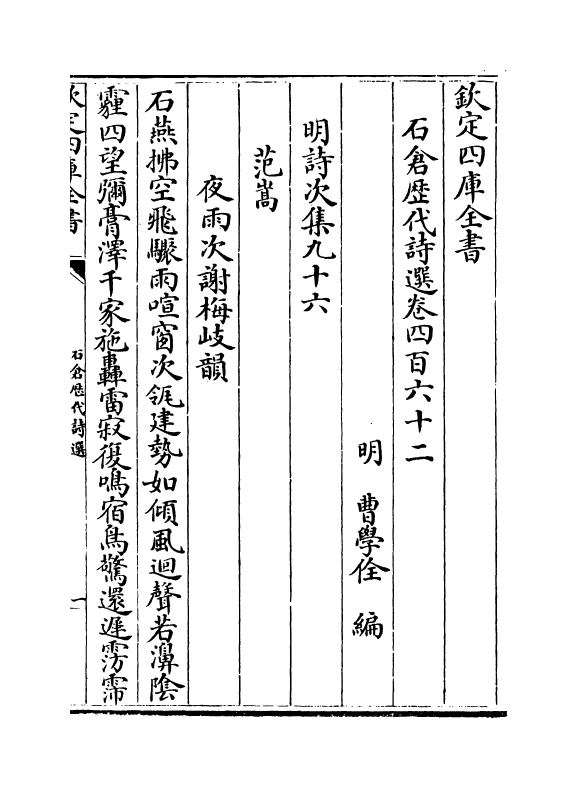 欽定四庫全書
石倉歴代詩選卷四百六十二
明 曹學佺 編
明詩次集九十六
范嵩
夜雨次謝梅岐韻
石燕拂空飛驟雨喧窗次瓴建勢如傾風迴聲若濞陰
霾四望彌膏澤千家施轟雷寂復鳴宿鳥驚還遲雱霈
欽定四庫全書
石倉歴代詩選
一